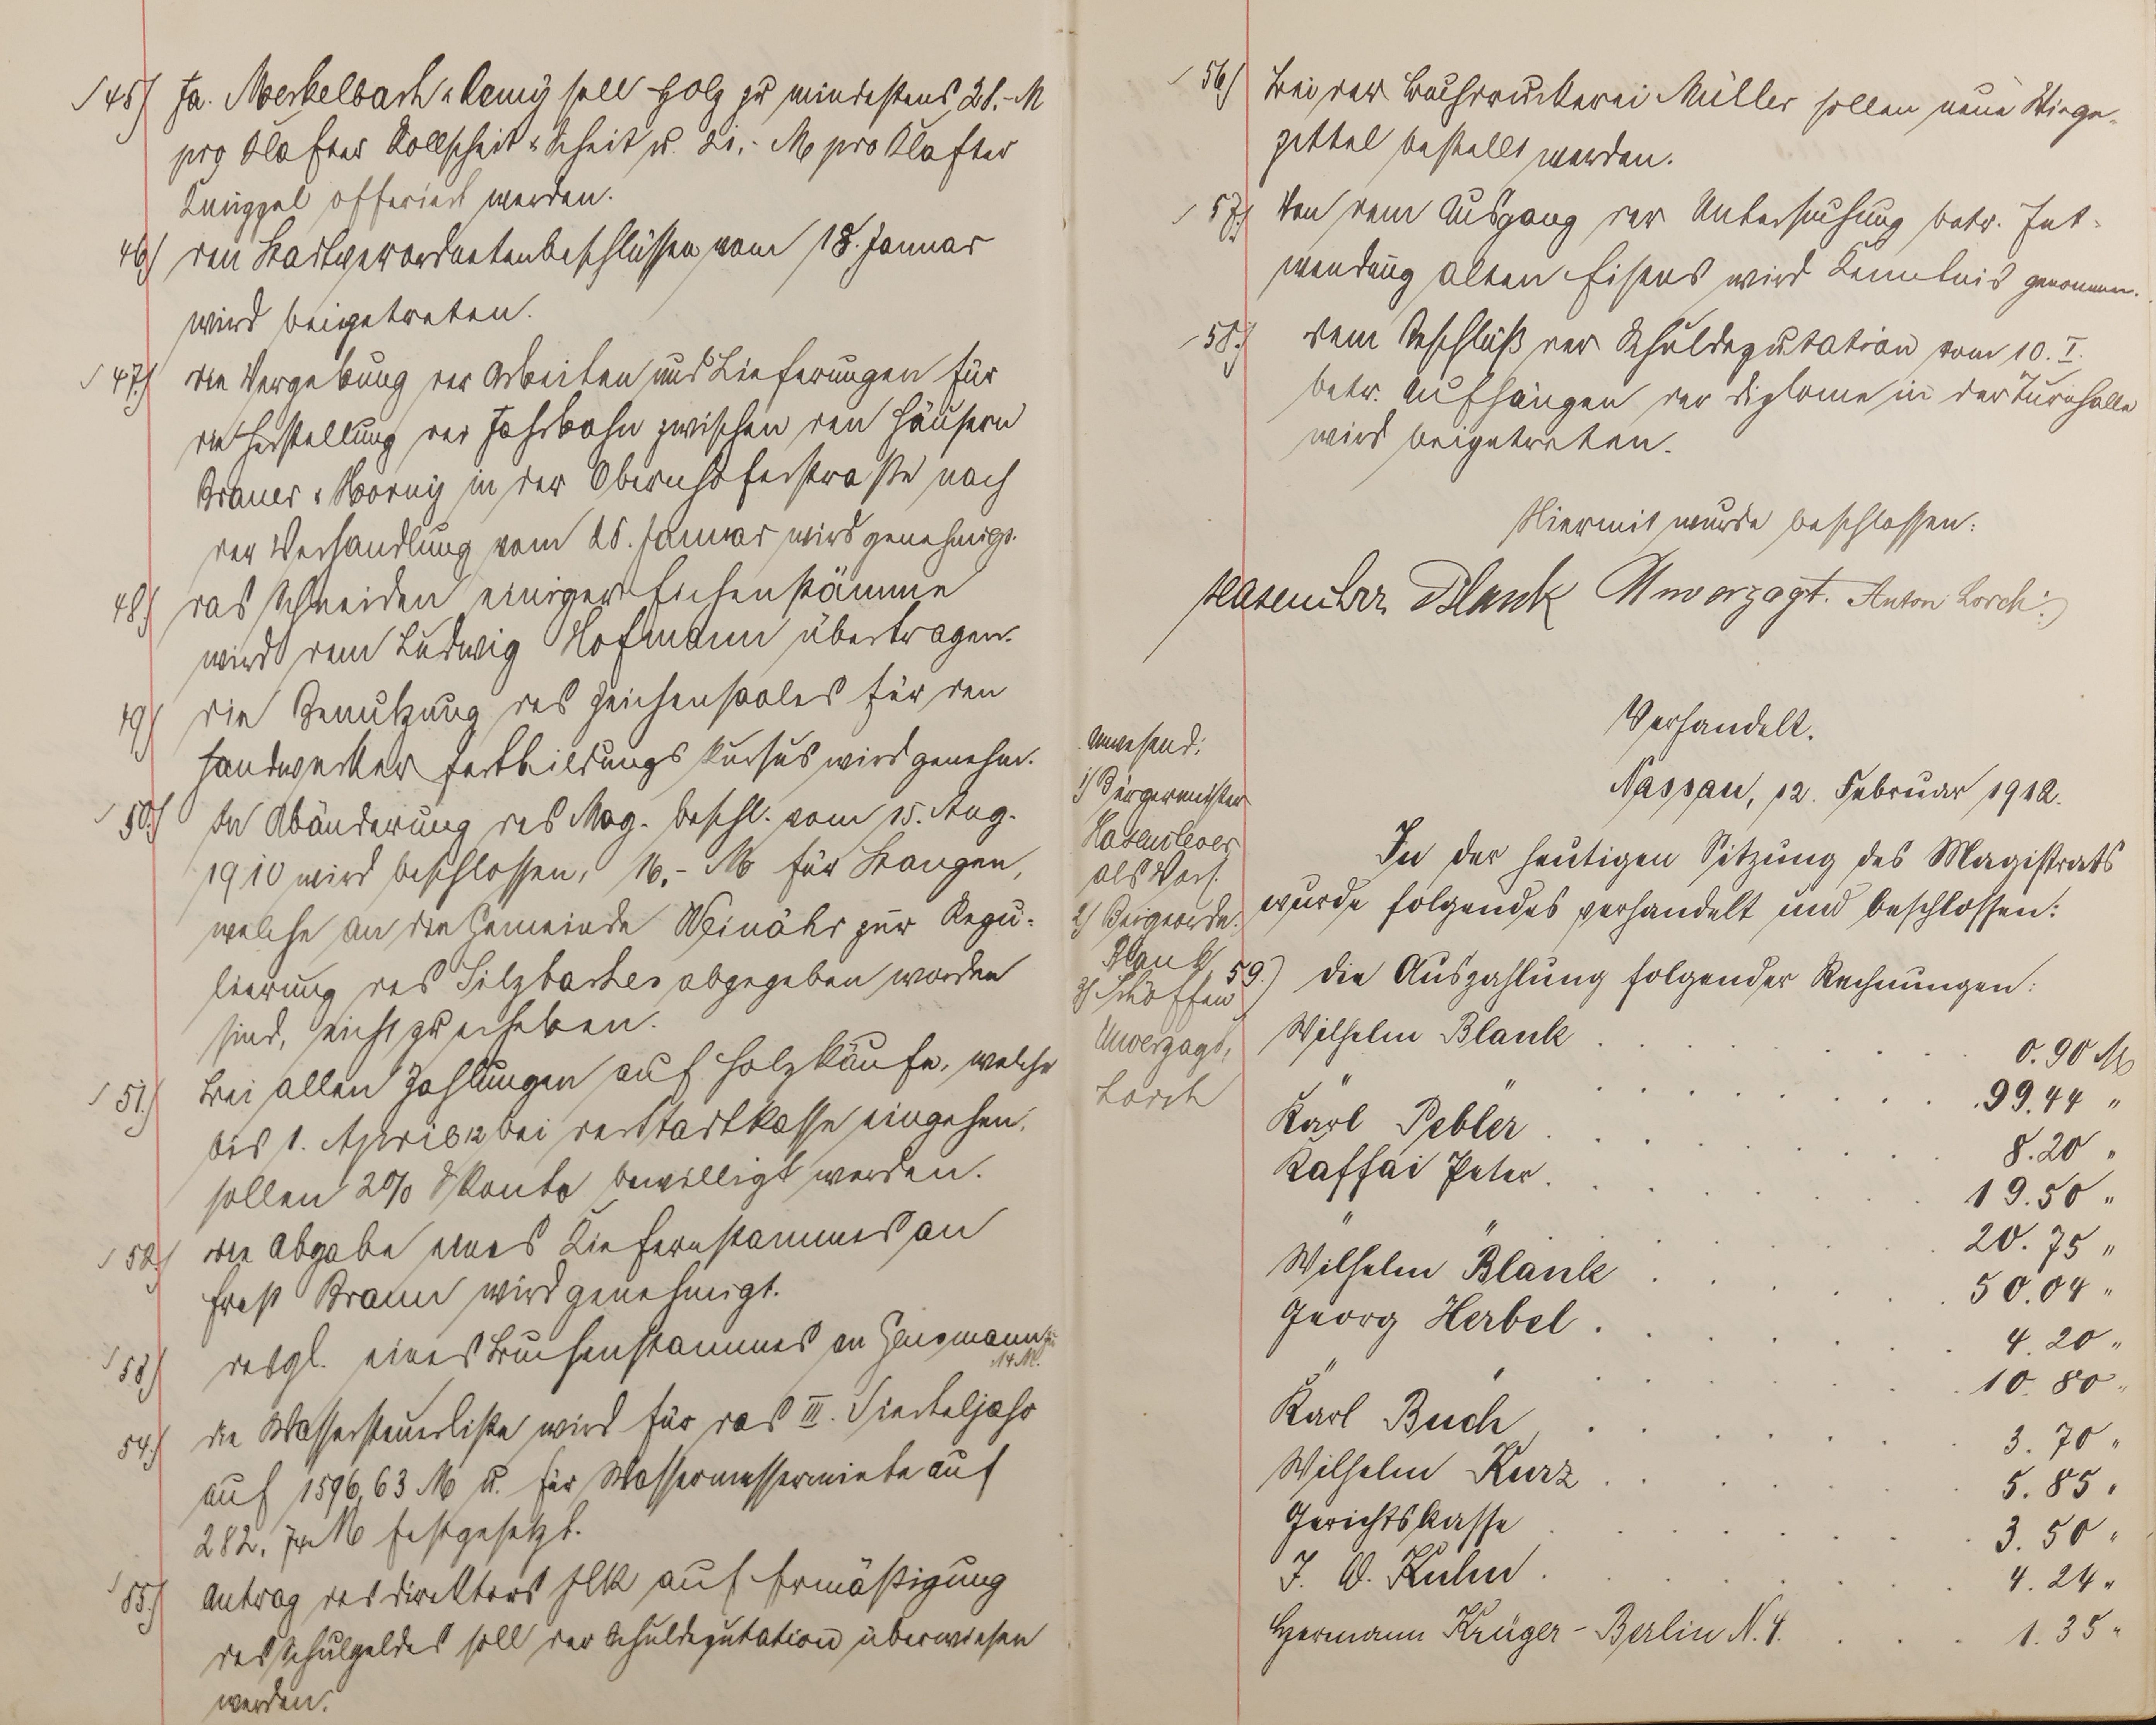 45) Fa. Merkelbach & Remy soll Holz zu mindestens 28.- M
pro Klafter Rollscheit & Scheit u. 21,- M pro Klafter
Knüppel offeriert werden.
46) den Stadtverordnetenbeschlüssen vom 18. Januar
wird beigetreten.
47.) die Vergebung der Arbeiten und Lieferungen für
die Herstellung der Fahrbahn zwischen den Häusern
Braner & in der Obernhoferstraße nach
der Verhandlung vom 26. Januar wird genehmigt.
48.) das Schneiden einiger Eichenstämme
wird dem Ludwig Hofmann übertragen.
49) die Benutzung des Zeichensaales für den
Handwerker Fortbildungskursus wird genehm.
50.) In Abänderung des Mag. beschl. vom 15. Aug.
1910 wird beschlossen, 16,- M für Stangen,
welche an die Gemeinde Weinähr zur Regu-
lierung des Silzbaches abgegeben worden
sind, nicht zu erheben.
51.) Bei allen Zahlungen auf Holzkäufe, welche
bis 1. April 12 bei der Stadtkasse eingehen,
sollen 2% Skonto bewilligt werden.
52.) die Abgabe eines Kiefernstammes an
Ernst Braun wird genehmigt.
53) desgl. eines Buchenstammes an zu
14 M.
54.) die Wassersteuerliste wird für das III. Vierteljahr
auf 1596,63 M u. für Wassermessermiete auf
282,74 M festgesetzt.
55.) Antrag des Direktors Ilk auf Ermäßigung
des Schulgeldes soll der Schuldeputation überwiesen
werden.
56) Bei der Buchdruckerei Müller sollen neue Wiege-
zettel bestellt werden.
57.) Von dem Ausgang der Untersuchung betr. Ent-
wendung alten Eisens wird Kenntnis genommen.
58.) dem Beschluß der Schuldeputation vom 10. I.
betr. Aufhängen der Diplome in der Turnhalle
wird beigetreten.
Hiermit wurde beschlossen:
Hasenclever Blank Unverzagt. Anton Lorch.
Verhandelt.
Nassau, 12. Februar 1912.
Anwesend:
1) Bürgermeister
Hasenclever
als Vors.
2) Beigeordn.
Blank
3) Schöffen
Unverzagt,
Lorch
In der heutigen Sitzung des Magistrats
wurde folgendes verhandelt und beschlossen:
59.) die Auszahlung folgender Rechnungen:
Wilhelm Blank . . . . . . . 0.90 M
" " . . . . . . . 99.44 "
Karl Pebler . . . . . . . 8.20 "
Kaffai Peter . . . . . . . 19.50 "
" " . . . . . . . 20.75 "
Wilhelm Blank . . . . . . 50.04 "
Georg Herbel . . . . . . . 4.20 "
" " . . . . . . . 10.80 "
Karl Buch . . . . . . . 3.70 "
Wilhelm Kurz . . . . . . . 5.85 "
Gerichtskasse . . . . . . . 3.50 "
J. W. Kuhn . . . . . . . 4.24 "
Hermann Krüger - Berlin N. 4. . . . 1.35 "